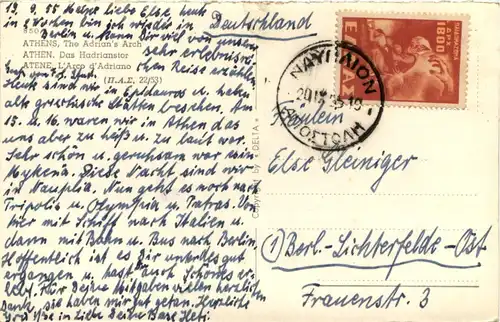 19. 9. 55 Meine liebe Else, heut
in 2 Wochen bin ich wieder in
Berlin u. kann Dir viel von unserer
sehr erlebnis
reichen Reise erzählen.
ATHENS, The Adrian's Arch
ATHEN. Das Hadrianstor
ATENE. L'Arco d'Adriano
(Π.Α.Σ. 22/53)
Heute sind wir in Epidauros u. haben
alte griechische Stätten besehen. Am
15. u. 16. waren wir in Athen das
uns aber zu heiß u. zu laut war.
Sehr schön u. geruhsam war
Mykenä. Diese Nacht sind wir
in Nauplia. Nun geht es noch nach
Tripolis u. Olympia u. Patras. Von
hier mit Schiff nach Italien u.
dann mit Bahn u. Bus nach Berlin.
Hoffentlich ist es Dir unterdes gut
ergangen u. hast auch Schönes er-
lebt. Für Deine Mitgaben vielen herzlich
Dank, sie haben mir gut getan. Herzliche
in Liebe Deine
Copyright by "DELTA"
Deutschland
1800
ΕΛΛΑΣ
ΝΑΥΠΛΙΟΝ
ΑΠΟΣΤΟΛΗ
Fräulein
Else Gleiniger
① Berl.-Lichterfelde-Ost
Frauenstr. 3